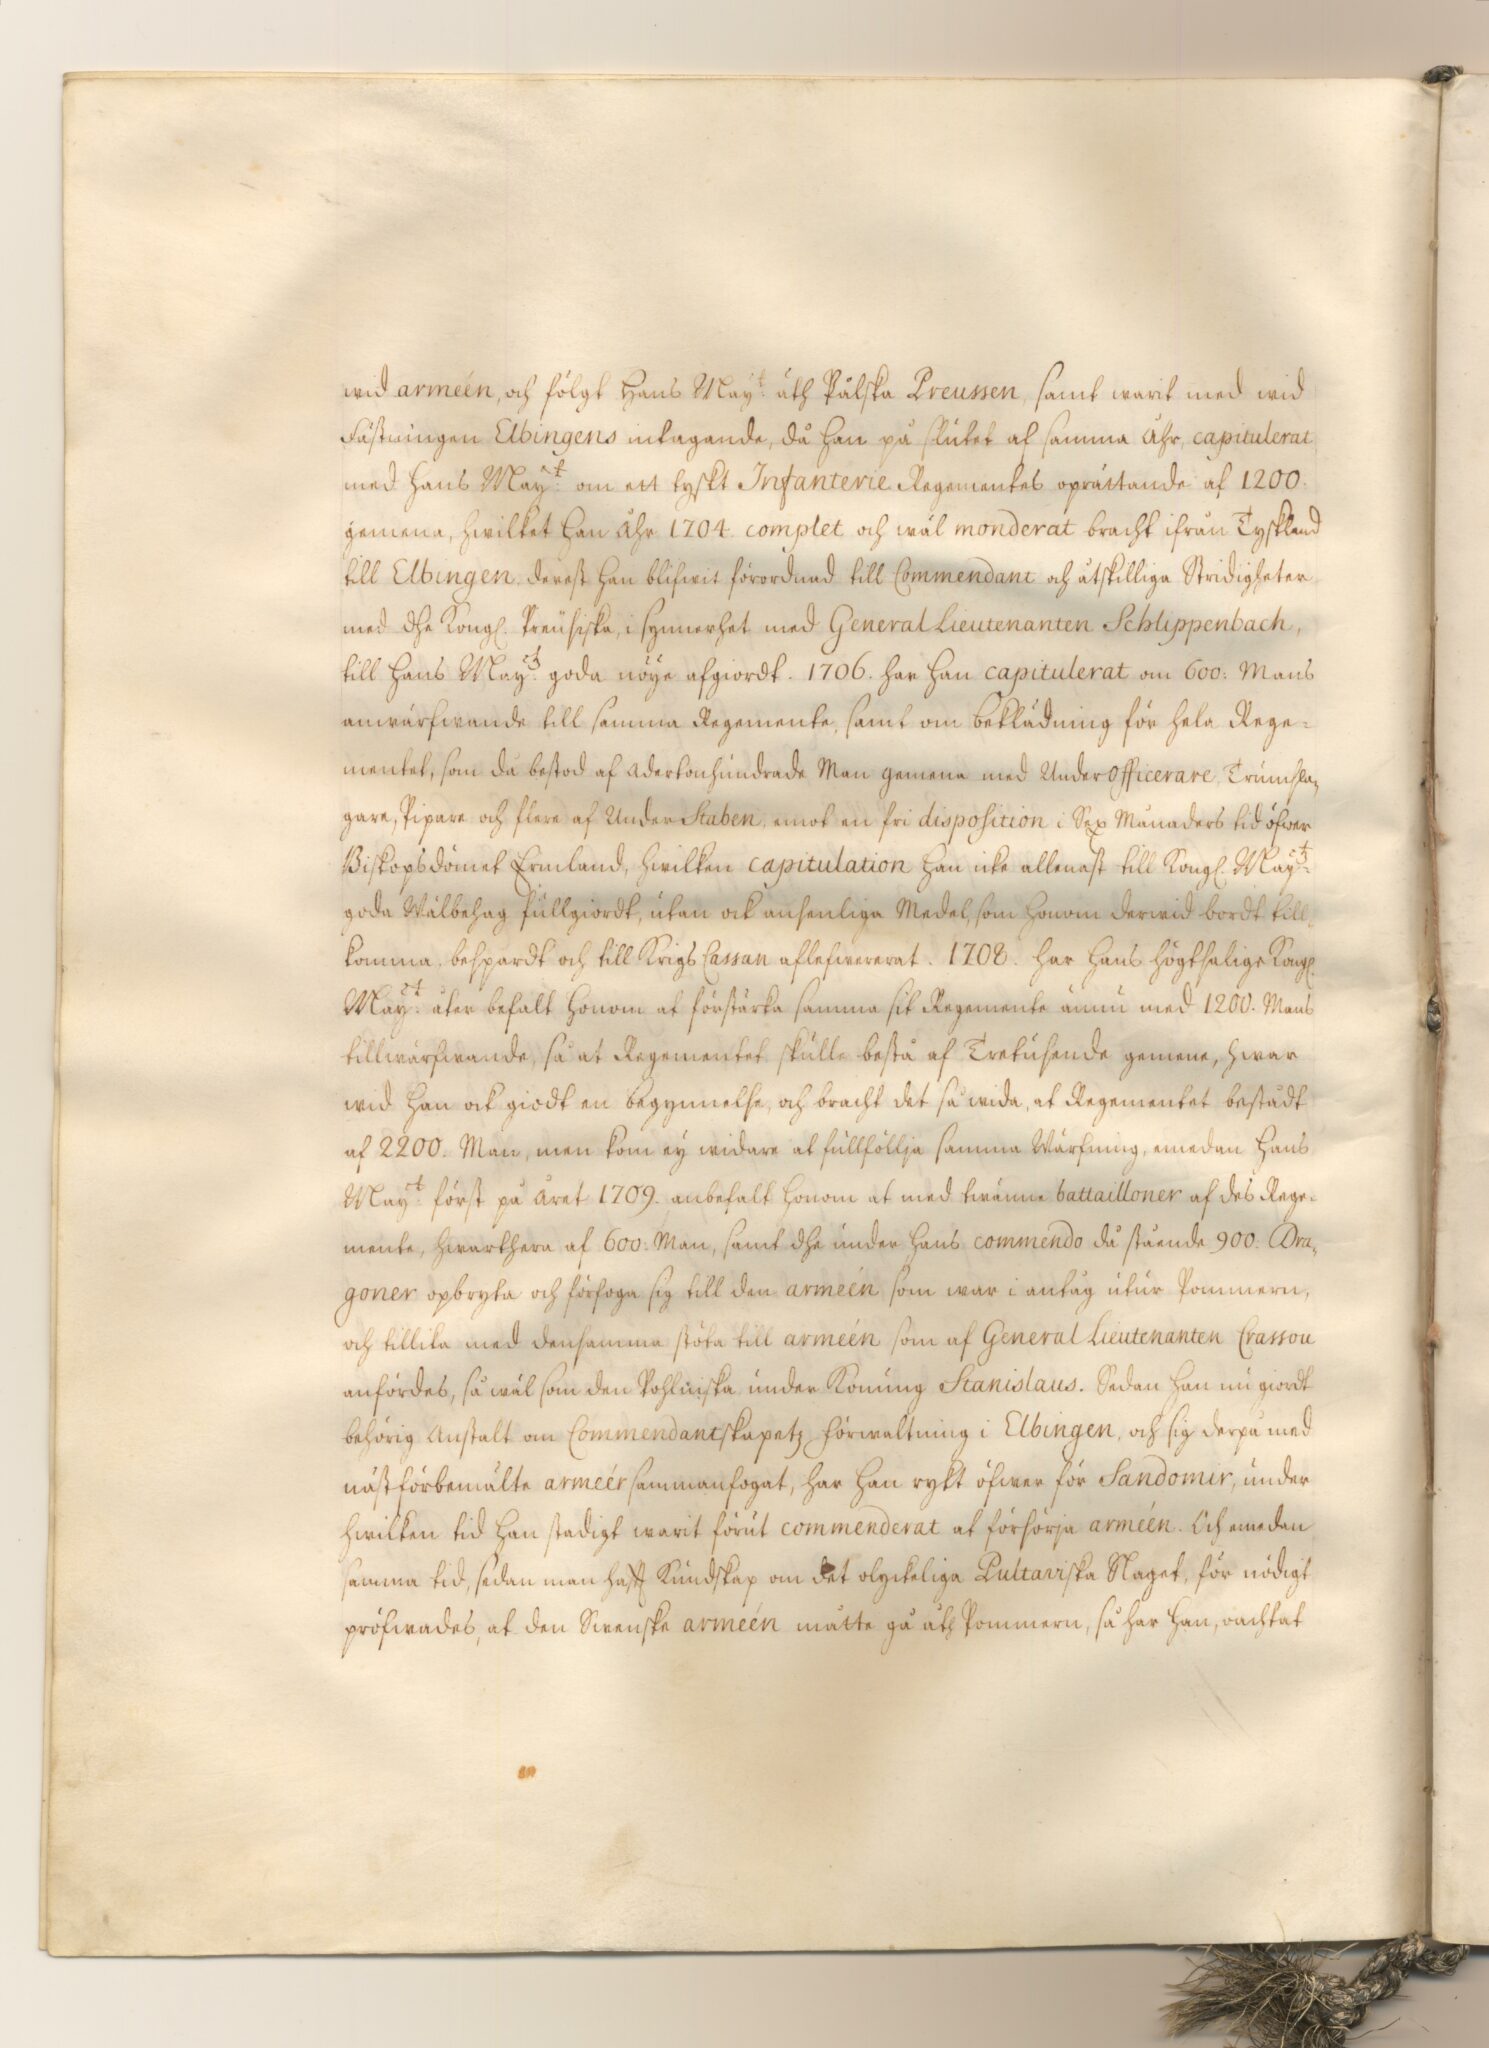 wid arméen, och fölgt Hans May:t åth Pålska Preussen, samt warit med wid
Fästningen Elbingens intagande, då han på slutet af samma Åhr, capitulerat
med Hans May:t om ett tyskt Infanterie Regementes oprättande af 1200.
gemena, hwilket han Åhr 1704. complet och wäl monderat bracht ifrån Tyskland
till Elbingen, derest han blifwit förordnad till Commendant och åtskilliga Stridigheter
med dhe Kongl. Preusiska, i synnerhet med General Lieutenanten Schlippenbach,
till Hans May:tz goda nöije afgiordt. 1706. har han capitulerat om 600: Mans
anwärfwande till samma Regemente, samt om beklädning för hela Rege=
mentet, som då bestod af Adertonhundrade Man gemena med Under Officerare, Trumsla,
gare, Pipare och flere af Under Staben, emot en fri disposition i Sex Månaders tid öfwer
Biskopsdömet Ermland, hwilken capitulation han icke allenast till Kongl. May:tz
goda Wälbehag fullgiordt, utan ock ansenliga Medel, som honom derwid bordt till,
komma, bespardt och till Krigs Cassan aflefwererat. 1708. har Hans Högtsalige Kongl.
May:t åter befalt honom at förstärka samma sit Regemente ännu med 1200. Mans
tillwärfwande, så at Regementet skulle bestå af Tretusende gemene, hwar
wid han ock giodt en begynnelse, och bracht det så wida, at Regementet bestådt
af 2200. Man, men kom ey widare at fullföllja samma Wärfning, emedan Hans
May:t först på Året 1709. anbefalt honom at med twänne battailloner af des Rege=
mente, hwarthera af 600. Man, samt dhe under Hans commendo då stående 900. Dra,
goner opbryta och förfoga sig till den arméen som war i antåg utur Pommern,
och tillika med densamma stöta till arméen som af General Lieutenanten Crassou
anfördes, så wäl som den Pohlniska under Konung Stanislaus. Sedan han nu giordt
behörig Anstalt om Commendantskapetz förwaltning i Elbingen, och sig derpå med
nästförbemälte arméer sammanfogat, har han rykt öfwer för Sandomir, under
hwilken tid han stadigt warit förut commenderat at försörja arméen. Och emedan
samma tid, sedan man haft Kundskap om det olyckeliga Pultaviska Slaget, för nödigt
pröfwades, at den Swenske arméen måtte gå åth Pommern, så har han, oachtat